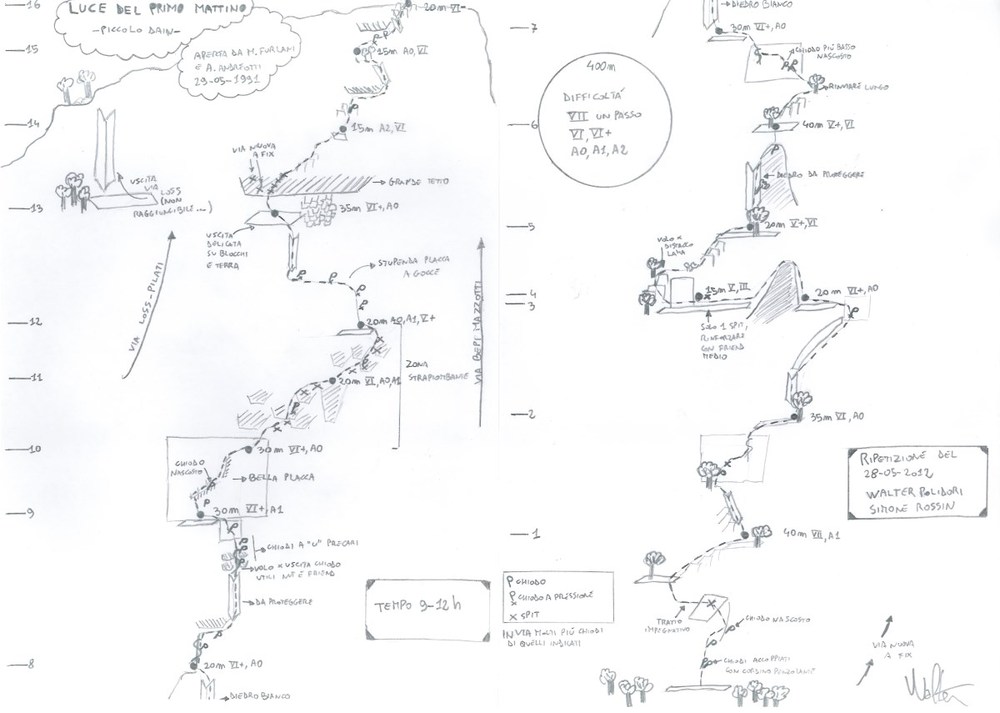 LUCE DEL PRIMO MATTINO
- PICCOLO DAIN -
APERTA DA M. FURLANI
E A. ANDREOTTI
29-05-1991
16
20m VI-
15
15m A0, VI
14
15m A2, VI
VIA NUOVA
A FIX
GRANDE TETTO
USCITA
VIA
LOSS
(NON
RAGGIUNGIBILE...)
13
35m VI+, A0
USCITA
DELICATA
SU BLOCCHI
E TERRA
STUPENDA PLACCA
A GOCCE
VIA LOSS-PILATI
VIA BEPI MAZZOTTI
12
20m A0, A1, V+
ZONA
STRAPIOMBANTE
11
20m VI, A0, A1
10
30m VI+, A0
CHIODO
NASCOSTO
BELLA PLACCA
9
30m VI+, A1
CHIODI A "U" PRECARI
VOLO X USCITA CHIODO
UTILI NUT E FRIEND
DA PROTEGGERE
8
20m VI+, A0
DIEDRO BIANCO
TEMPO 9-12h
DIEDRO BIANCO
7
30m VI+, A0
CHIODO PIÙ BASSO
NASCOSTO
RINVIARE LUNGO
400m
DIFFICOLTA'
VII UN PASSO
VI, VI+
A0, A1, A2
6
40m V+, VI
DIEDRO DA PROTEGGERE
5
20m V+, VI
VOLO X
DISTACCO
LAMA
4
15m V, III
3
20m VI+, A0
SOLO 1 SPIT,
RINFORZARE
CON FRIEND
MEDIO
2
35m VI, A0
RIPETIZIONE DEL
28-05-2012
WALTER POLIDORI
SIMONE ROSSIN
1
40m VII, A1
CHIODO
CHIODO A PRESSIONE
X SPIT
IN VIA MOLTI PIÙ CHIODI
DI QUELLI INDICATI
TRATTO
IMPEGNATIVO
CHIODO NASCOSTO
CHIODI ACCOPPIATI
CON CORDINO
VIA NUOVA
A FIX
Walter